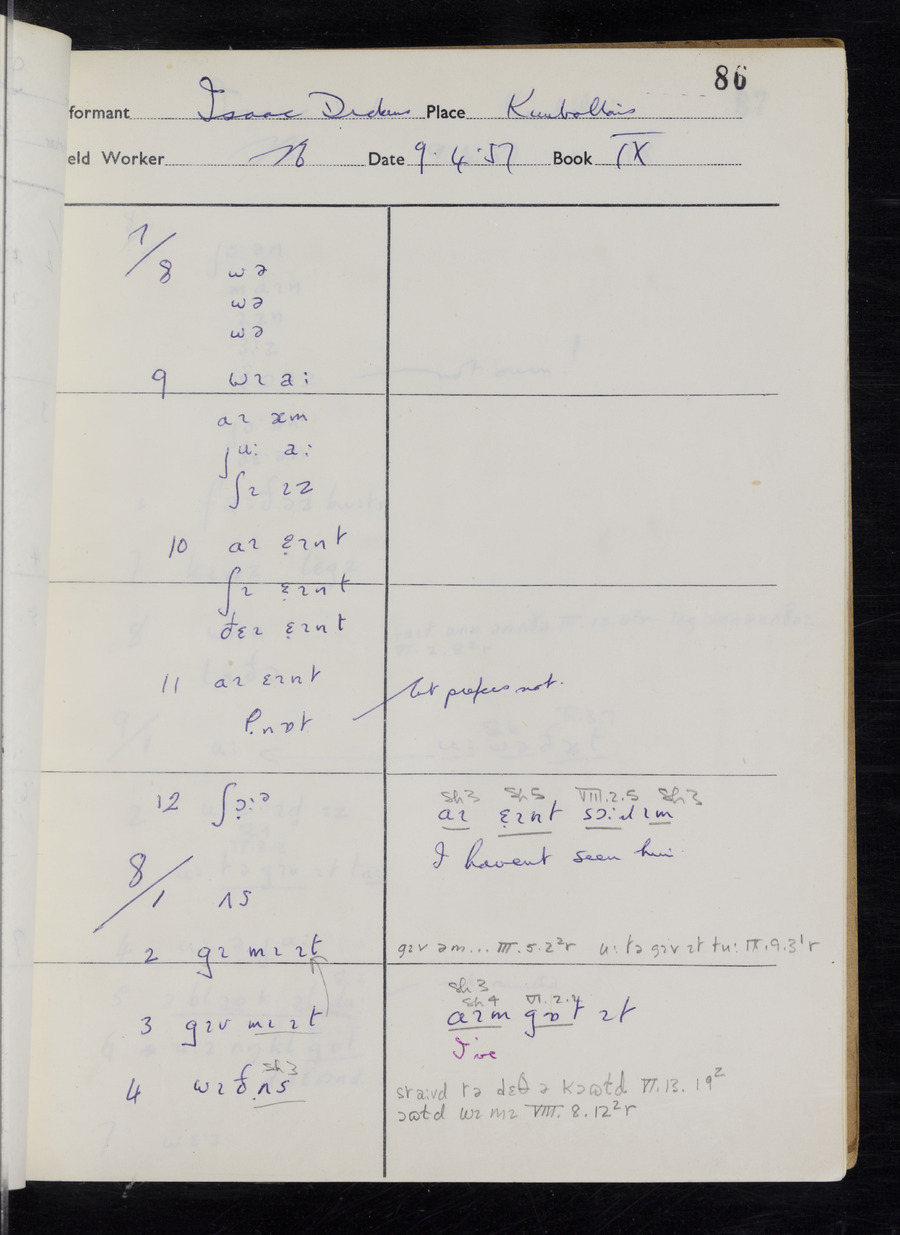 86
formant Isaac Dickens Place Kimbolton
eld Worker Date 9.4.57 Book IX
7/8 wə
wə
wə
9 wɪ aː
aɪ æm
ʃuː aː
ʃɪ ɪz
10 aɪ ɛ̣ɪnt
ʃɪ ɛ̣ɪnt
ðɛɪ ɛɪnt
11 aɪ ɛɪnt
P. nɒt but prefers not.
12 ʃɔ̣ːə
Sh3 Sh5 VIII.2.5 Sh3
aɪ ɛ̣ɪnt sɔiːd ɪm
I havent seen him
8/1 ʌs
2 gɪ mɪ ɪt
gɪv əm... III.5.2²r uː tə gɪv ɪt tuː IX.9.3¹r
3 gɪv mɪ ɪt
Sh3
Sh4 VI.2.4
aɪm gɒt ɪt
I've
4 wɪð ʌ̣s Sh3
straɪvd tə dɛθ ə kɔωtd VI.13.19²
ɔωtd wɪ mɪ VIII.8.12²r